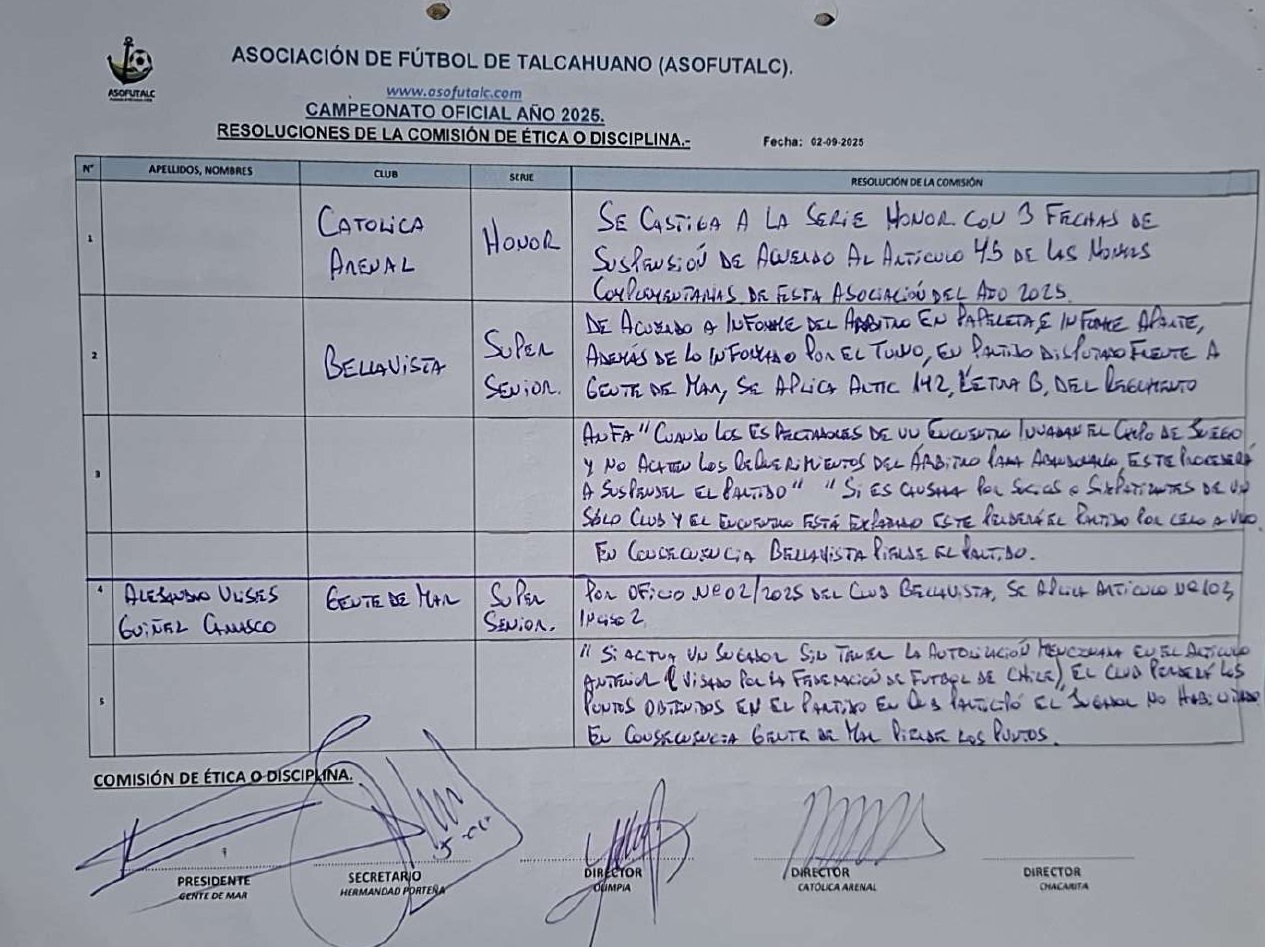 ASOFUTALC
ASOCIACIÓN DE FÚTBOL DE TALCAHUANO (ASOFUTALC).
www.asofutalc.com
CAMPEONATO OFICIAL AÑO 2025.
RESOLUCIONES DE LA COMISIÓN DE ÉTICA O DISCIPLINA.-
Fecha: 02-09-2025
N° APELLIDOS, NOMBRES CLUB SERIE RESOLUCIÓN DE LA COMISIÓN
1
CATOLICA
ARENAL
HONOR
SE CASTIGA A LA SERIE HONOR CON 3 FECHAS DE
SUSPENSIÓN DE ACUERDO AL ARTÍCULO 45 DE LAS NORMAS
COMPLEMENTARIAS DE ESTA ASOCIACIÓN DEL AÑO 2025.
2
BELLAVISTA
SUPER
SENIOR.
DE ACUERDO A INFORME DEL ARBITRO EN PAPELETA, E INFORME APARTE,
ADEMÁS DE LO INFORMADO POR EL TURNO, EN PARTIDO DISPUTADO FRENTE A
GENTE DE MAR, SE APLICA ARTIC 142, LETRA B, DEL REGLAMENTO
3
ANFA "CUANDO LOS ESPECTADORES DE UN ENCUENTRO INVADAN EL CAMPO DE JUEGO
Y NO ACATEN LOS REQUERIMIENTOS DEL ÁRBITRO PARA ABANDONARLO, ESTE PROCEDERÁ
A SUSPENDER EL PARTIDO" "SI ES CAUSADA POR SOCIOS O SIMPATIZANTES DE UN
SÓLO CLUB Y EL ENCUENTRO ESTÁ EMPATADO ESTE PERDERÁ EL PARTIDO POR CERO A UNO.
EN CONSECUENCIA BELLAVISTA PIERDE EL PARTIDO.
4
ALEJANDRO ULISES
GUIÑEZ CARRASCO
GENTE DE MAR
SUPER
SENIOR.
POR OFICIO Nº 02/2025 DEL CLUB BELLAVISTA, SE APLICA ARTICULO Nº 103,
INCISO 2.
5
"SI ACTUA UN JUGADOR SIN TENER LA AUTORIZACIÓN MENCIONADA EN EL ARTÍCULO
ANTERIOR (VISADO POR LA FEDERACIÓN DE FUTBOL DE CHILE), EL CLUB PERDERÁ LOS
PUNTOS OBTENIDOS EN EL PARTIDO EN QUE PARTICIPÓ EL JUGADOR NO HABILITADO
EN CONSECUENCIA GENTE DE MAR PIERDE LOS PUNTOS.
COMISIÓN DE ÉTICA O DISCIPLINA.
PRESIDENTE SECRETARIO DIRECTOR DIRECTOR DIRECTOR
GENTE DE MAR HERMANDAD PORTEÑA OLIMPIA CATÓLICA ARENAL CHACARITA